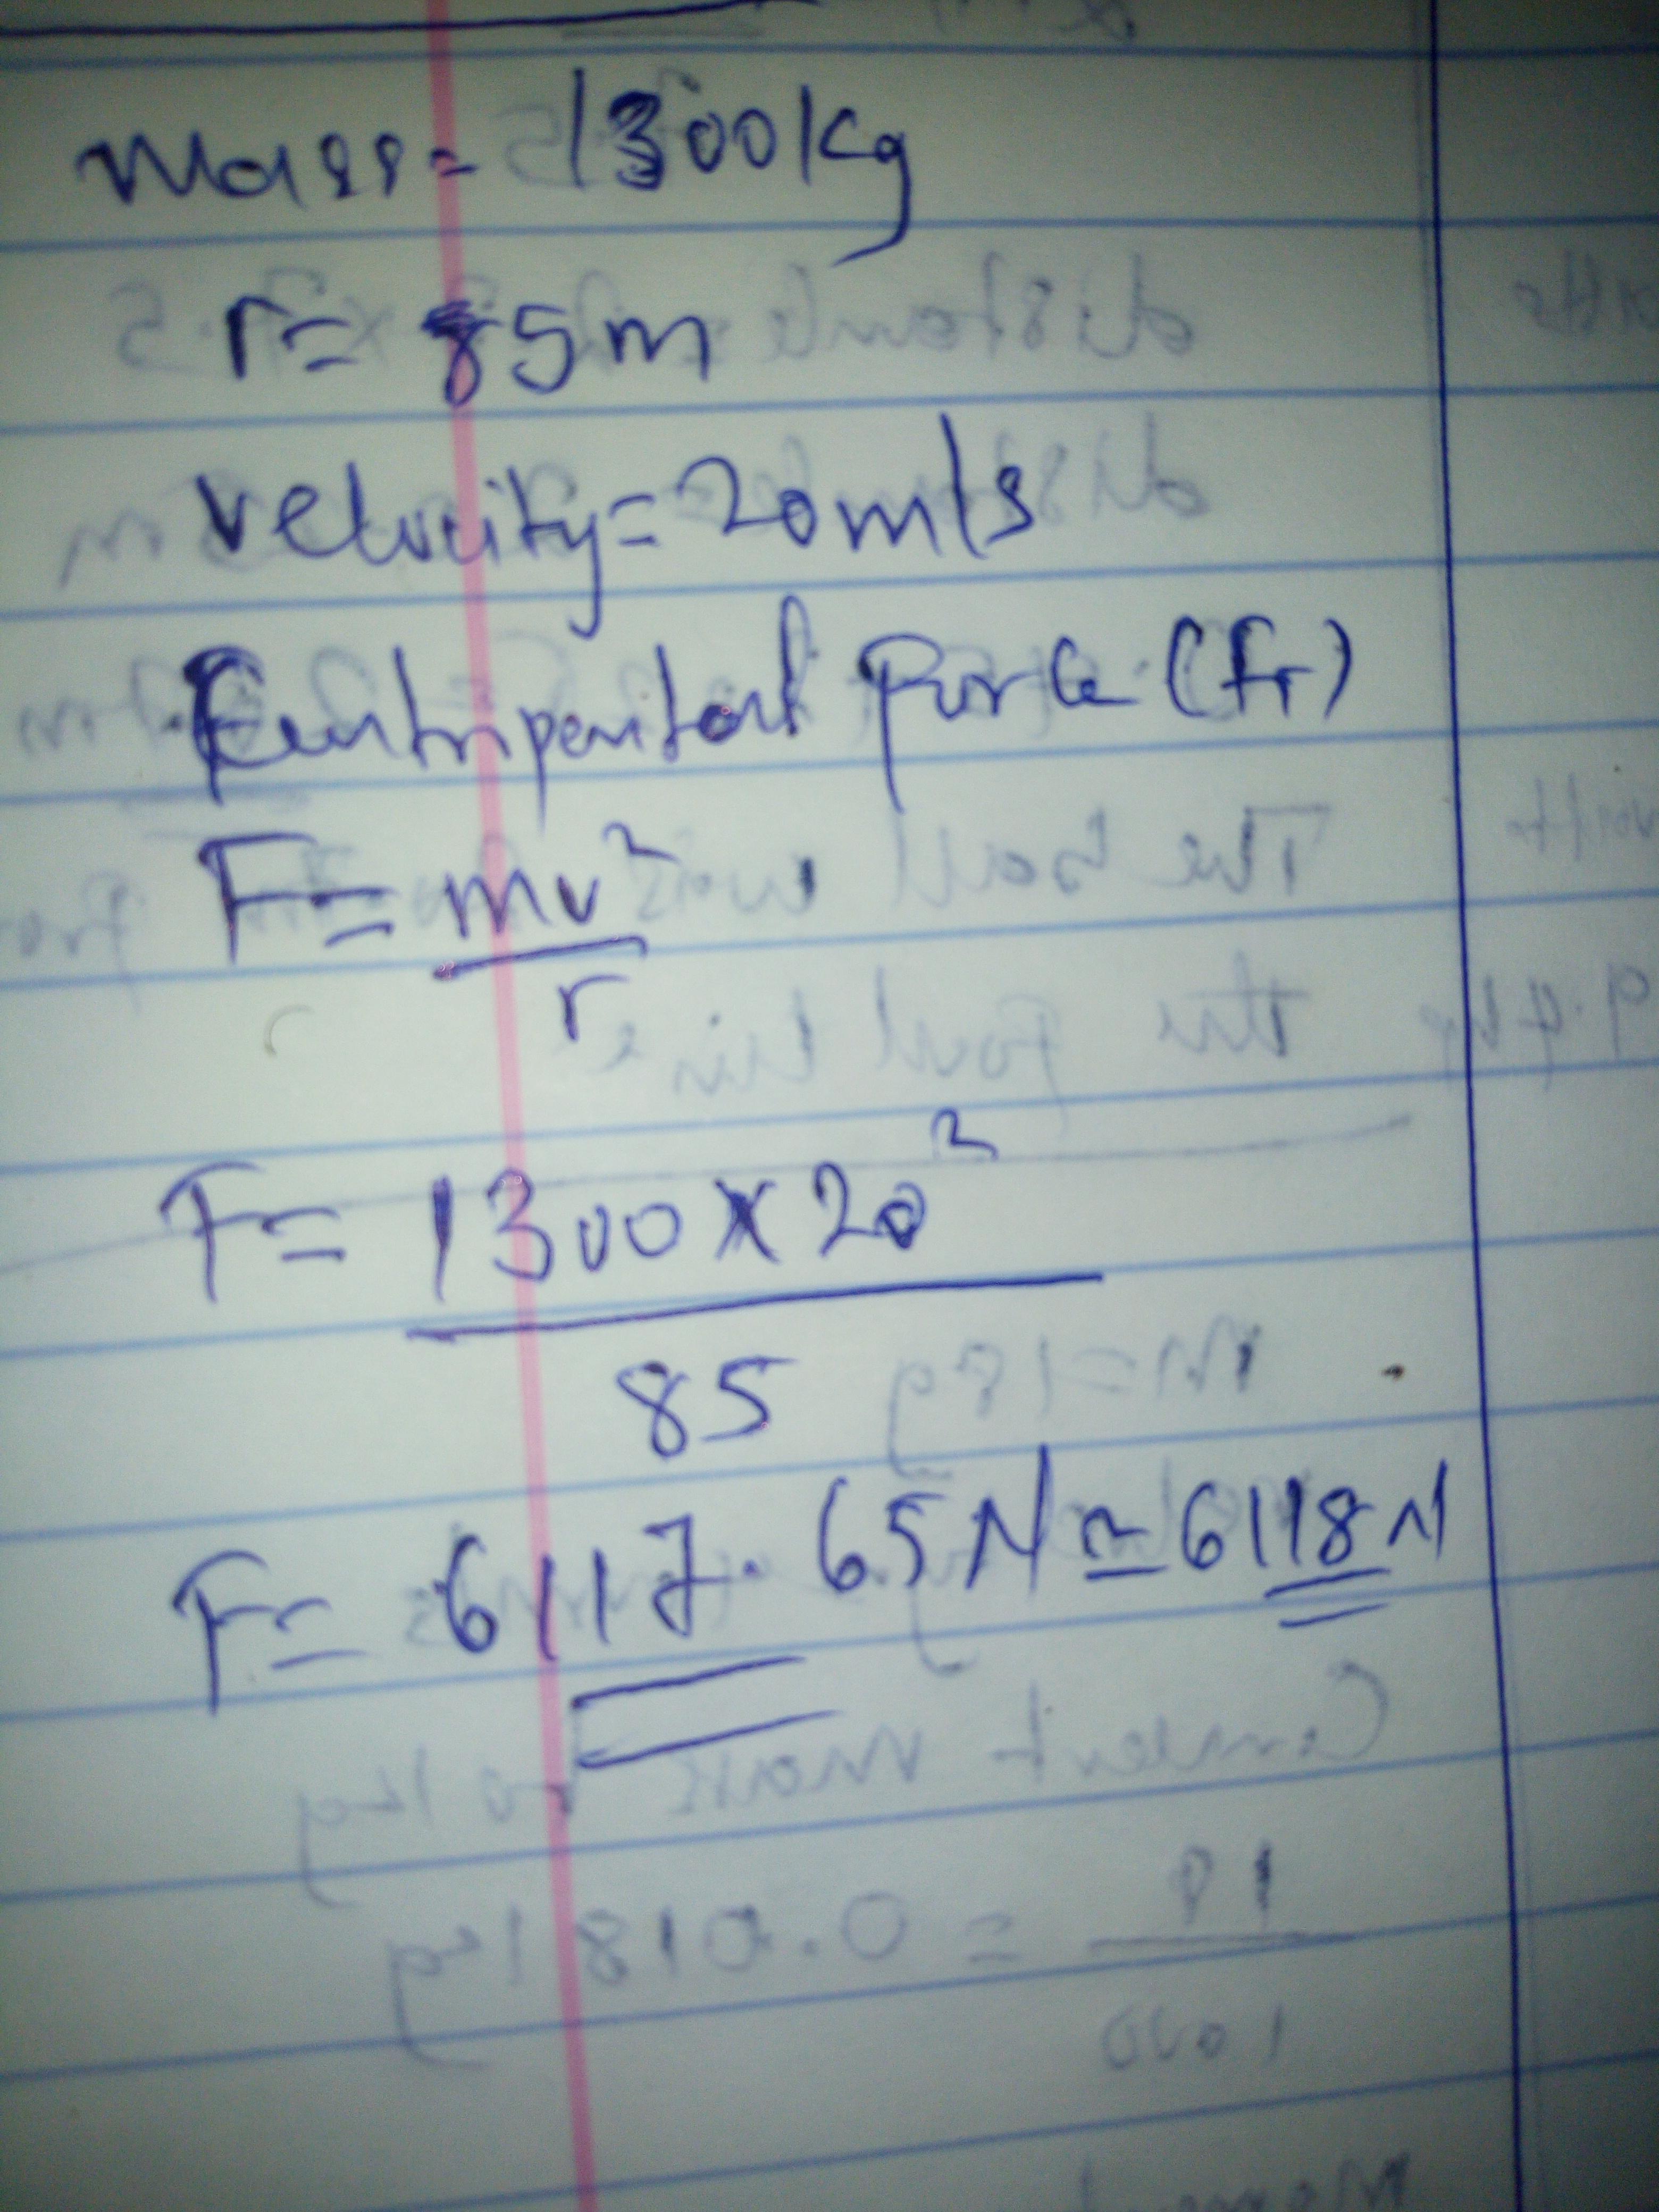 Mass = 1300kg
r = 85m
Velocity = 20m/s
Centripental force (Fr)
F = mv²
r
F = 1300 x 20²
85
F = 6117.65N ≃ 6118N